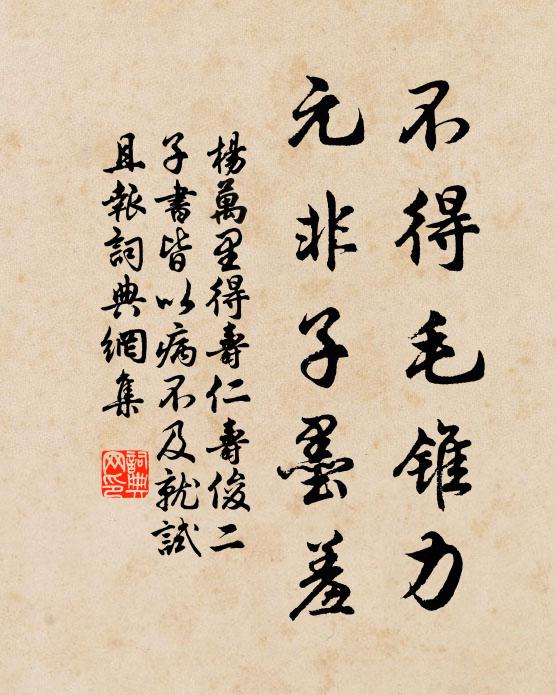 不得毛錐力
元非子墨羞
楊萬里得壽仁壽俊二
子書皆以病不及就試
且報詞典網集
詞典
网印